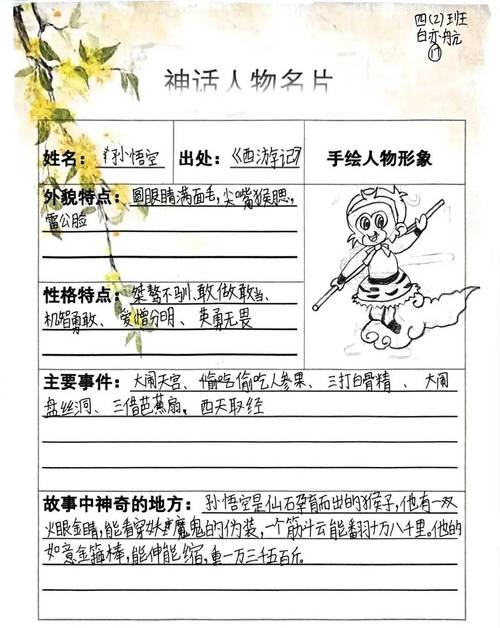 四(2)班
白亦航
⑰
神话人物名片
姓名：孙悟空
出处：《西游记》
手绘人物形象
外貌特点：圆眼睛满面毛，尖嘴猴腮，
雷公脸
性格特点：桀骜不驯、敢做敢当、
机智勇敢、爱憎分明、英勇无畏
主要事件：大闹天宫、偷吃偷吃人参果、三打白骨精、大闹
盘丝洞、三借芭蕉扇，西天取经
故事中神奇的地方：孙悟空是仙石孕育而出的猴子，他有一双
火眼金睛，能看穿妖魔鬼的伪装，一个筋斗云能翻十万八千里。他的
如意金箍棒，能伸能缩，重一万三千五百斤。